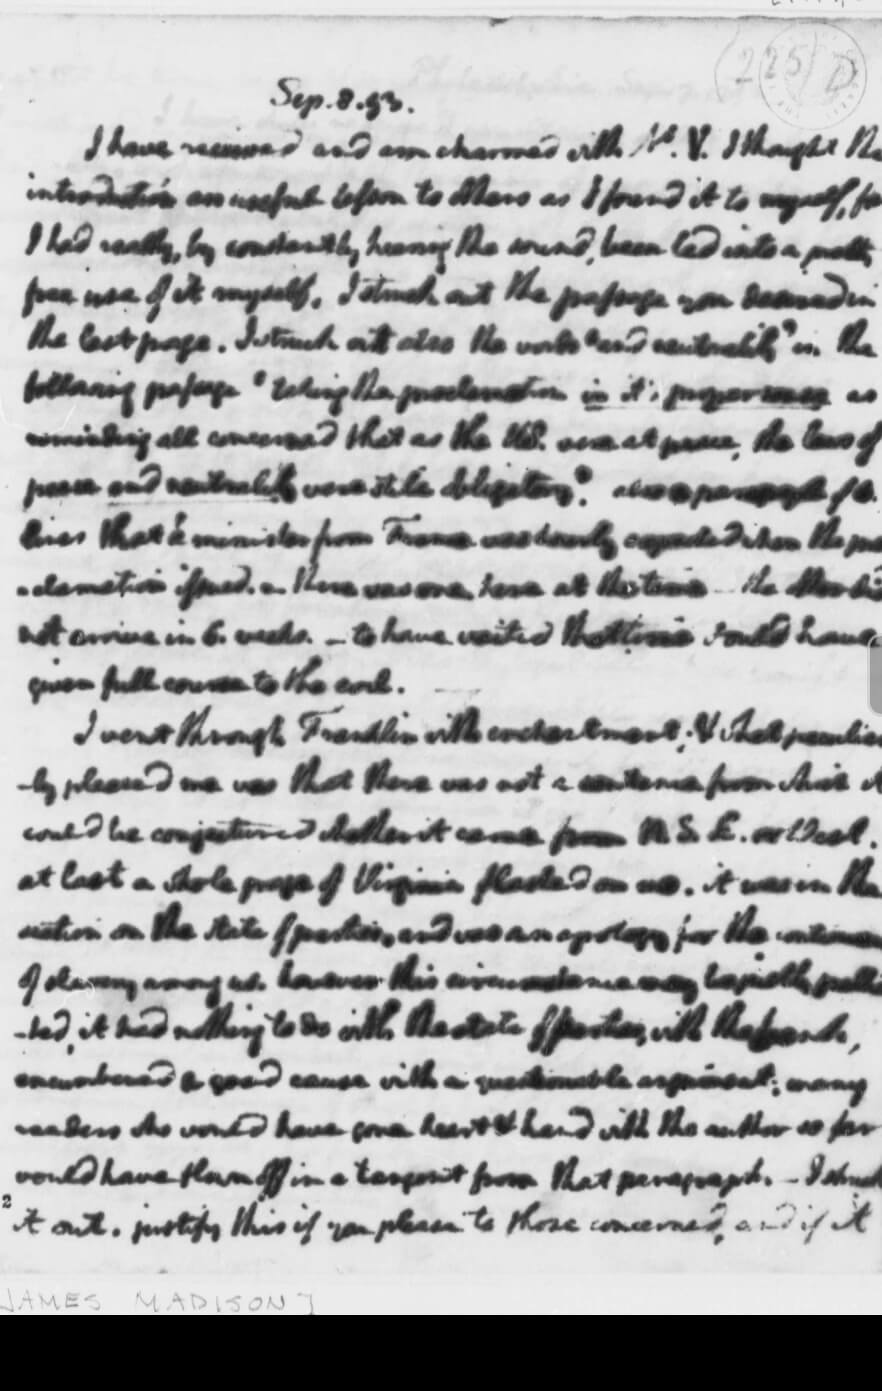 225
Sep. 8. 93.
I have received and am charmed with No. V. I thought the
introduction an useful lesson to others as I found it to myself, for
I had really, by constantly hearing the sound, been led into a pretty
free use of it myself. I struck out the passage you desired in
the last page. I struck out also the words "and neutrality" in the
following passage "taking the proclamation in it's proper sense as
reminding all concerned that as the US. were at peace, the laws of
peace and neutrality were still obligatory". also a paragraph of 4.
lines that a minister from France was hourly expected when the pro
clamation issued. there was one here at the time the other did
not arrive in 6. weeks. – to have waited that time would have
given full course to the evil.
I went through Franklin with enchantment; & what peculiar
-ly pleased me was that there was not a sentence from which it
could be conjectured whether it came from N. S. E. or West.
at last a whole page of Virginia flashed on me. it was in the
section on the state of parties, and was an apology for the continuance
of slavery among us. however this circumstance may be justly pallia
-ted, it had nothing to do with the state of parties, with the bank,
encumbered a good cause with a questionable argument; many
readers who would have gone heart & hand with the author so far
would have flown off in a tangent from that paragraph. – I struck
it out. justify this if you please to those concerned, and if it
JAMES MADISON]